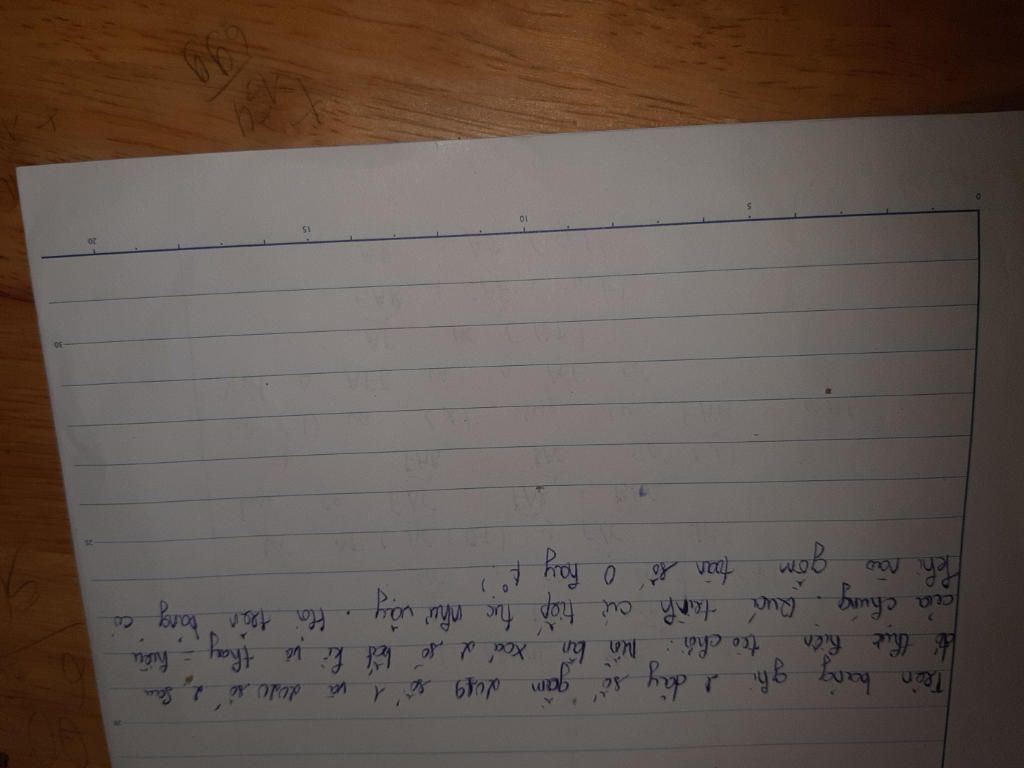 20
Trên bảng ghi 1 dãy số gồm 2019 số 1 và 2020 số 2 sau
đó thực hiện trò chơi: Mỗi lần xoá 2 số bất kì và thay = hiệu
của chúng. Quá trình cứ tiếp tục như vậy. Hỏi trên bảng có
khi nào gồm toàn số 0 hay
25
30
0 5 10 15 20